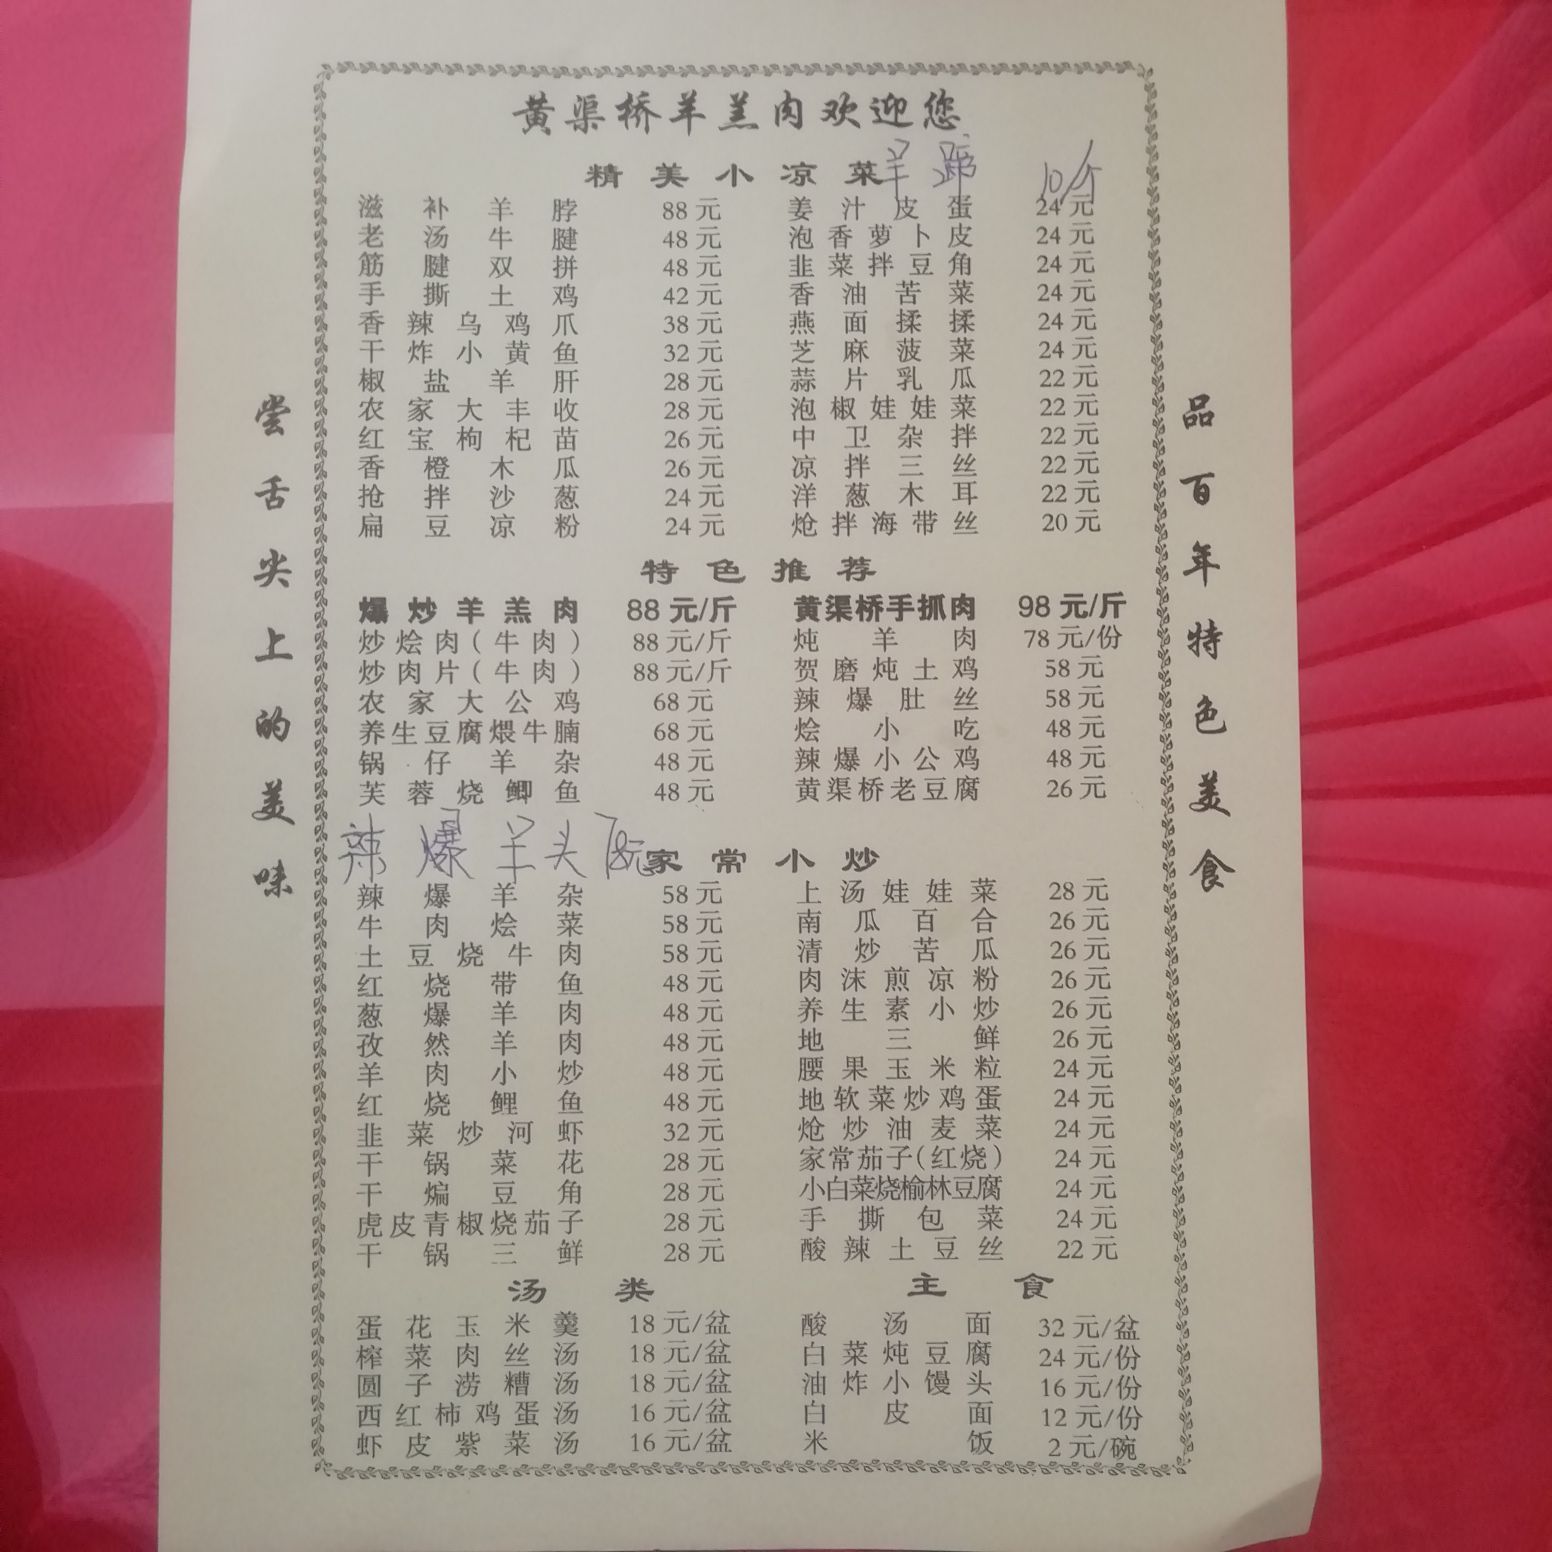 黄渠桥羊羔肉欢迎您
精美小凉菜 羊蹄 10/个
滋补羊脖 88元 姜汁皮蛋 24元
老汤牛腱 48元 泡香萝卜皮 24元
筋腱双拼 48元 韭菜拌豆角 24元
手撕土鸡 42元 香油苦菜 24元
香辣乌鸡爪 38元 燕面揉揉 24元
干炸小黄鱼 32元 芝麻菠菜 24元
椒盐羊肝 28元 蒜片乳瓜 22元
农家大丰收 28元 泡椒娃娃菜 22元
红宝枸杞苗 26元 中卫杂拌 22元
香橙木瓜 26元 凉拌三丝 22元
抢拌沙葱 24元 洋葱木耳 22元
扁豆凉粉 24元 炝拌海带丝 20元
特色推荐
爆炒羊羔肉 88元/斤 黄渠桥手抓肉 98元/斤
炒烩肉(牛肉) 88元/斤 炖羊肉 78元/份
炒肉片(牛肉) 88元/斤 贺磨炖土鸡 58元
农家大公鸡 68元 辣爆肚丝 58元
养生豆腐煨牛腩 68元 烩小吃 48元
锅仔羊杂 48元 辣爆小公鸡 48元
芙蓉烧鲫鱼 48元 黄渠桥老豆腐 26元
辣爆羊头 78元
家常小炒
辣爆羊杂 58元 上汤娃娃菜 28元
牛肉烩菜 58元 南瓜百合 26元
土豆烧牛肉 58元 清炒苦瓜 26元
红烧带鱼 48元 肉沫煎凉粉 26元
葱爆羊肉 48元 养生素小炒 26元
孜然羊肉 48元 地三鲜 26元
羊肉小炒 48元 腰果玉米粒 24元
红烧鲤鱼 48元 地软菜炒鸡蛋 24元
韭菜炒河虾 32元 炝炒油麦菜 24元
干锅菜花 28元 家常茄子(红烧) 24元
干煸豆角 28元 小白菜烧榆林豆腐 24元
虎皮青椒烧茄子 28元 手撕包菜 24元
干锅三鲜 28元 酸辣土豆丝 22元
汤类 主食
蛋花玉米羹 18元/盆 酸汤面 32元/盆
榨菜肉丝汤 18元/盆 白菜炖豆腐 24元/份
圆子涝糟汤 18元/盆 油炸小馒头 16元/份
西红柿鸡蛋汤 16元/盆 白皮面 12元/份
虾皮紫菜汤 16元/盆 米饭 2元/碗
尝舌尖上的美味
品百年特色美食